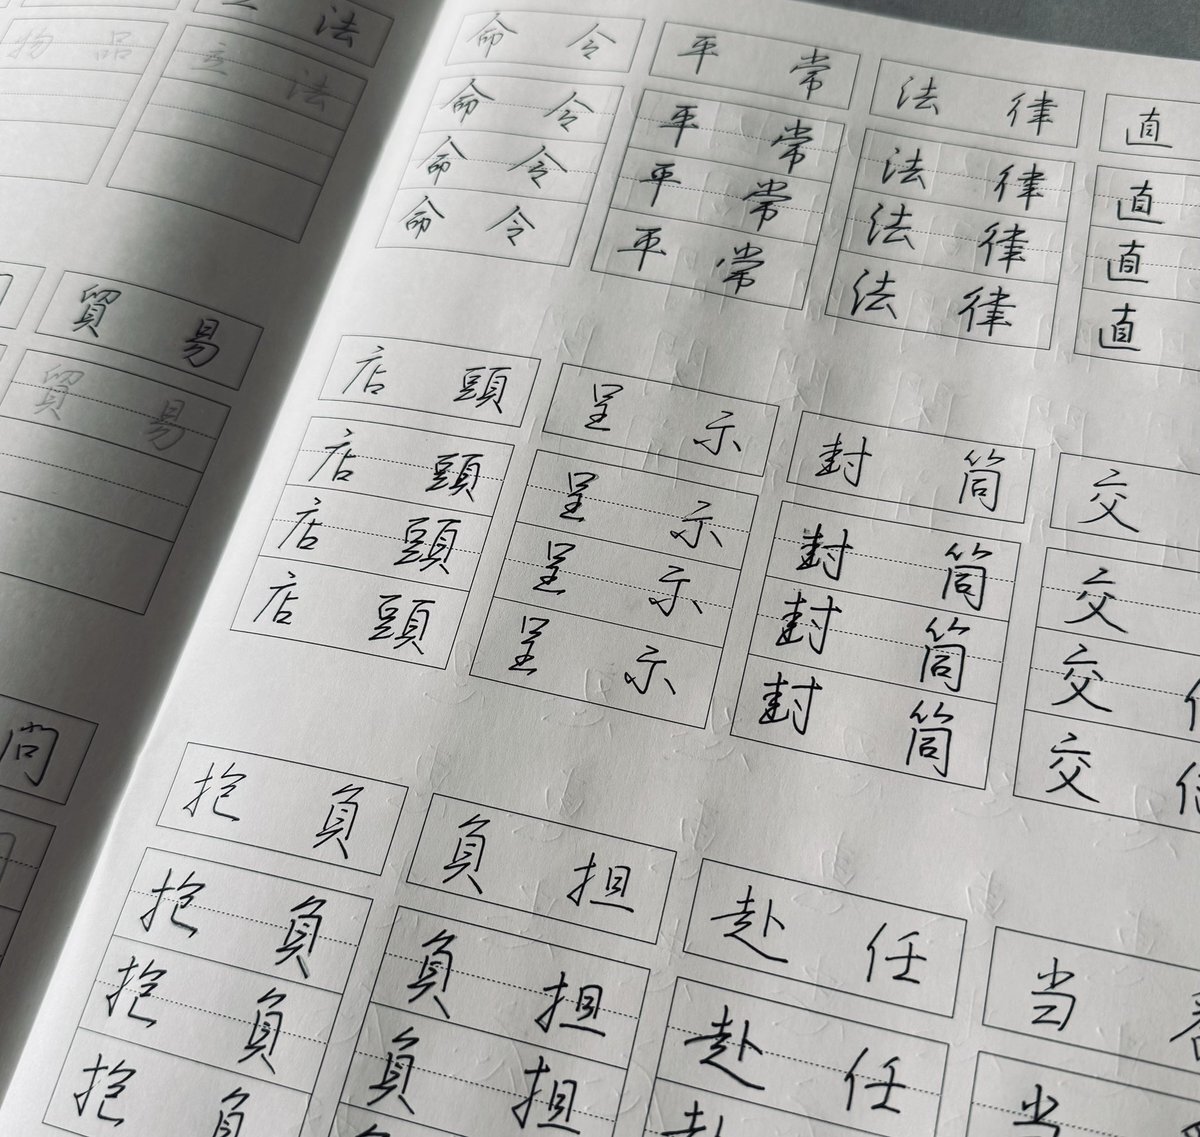 法
物 品
立 法
貿 易
貿 易
命 令
命 令
命 令
命 令
平 常
平 常
平 常
平 常
法 律
法 律
法 律
法 律
直
直
直
直
店 頭
店 頭
店 頭
店 頭
呈 示
呈 示
呈 示
呈 示
封 筒
封 筒
封 筒
封 筒
交
交
交
交
抱 負
抱 負
抱 負
抱 負
負 担
負 担
負 担
赴 任
赴 任
当